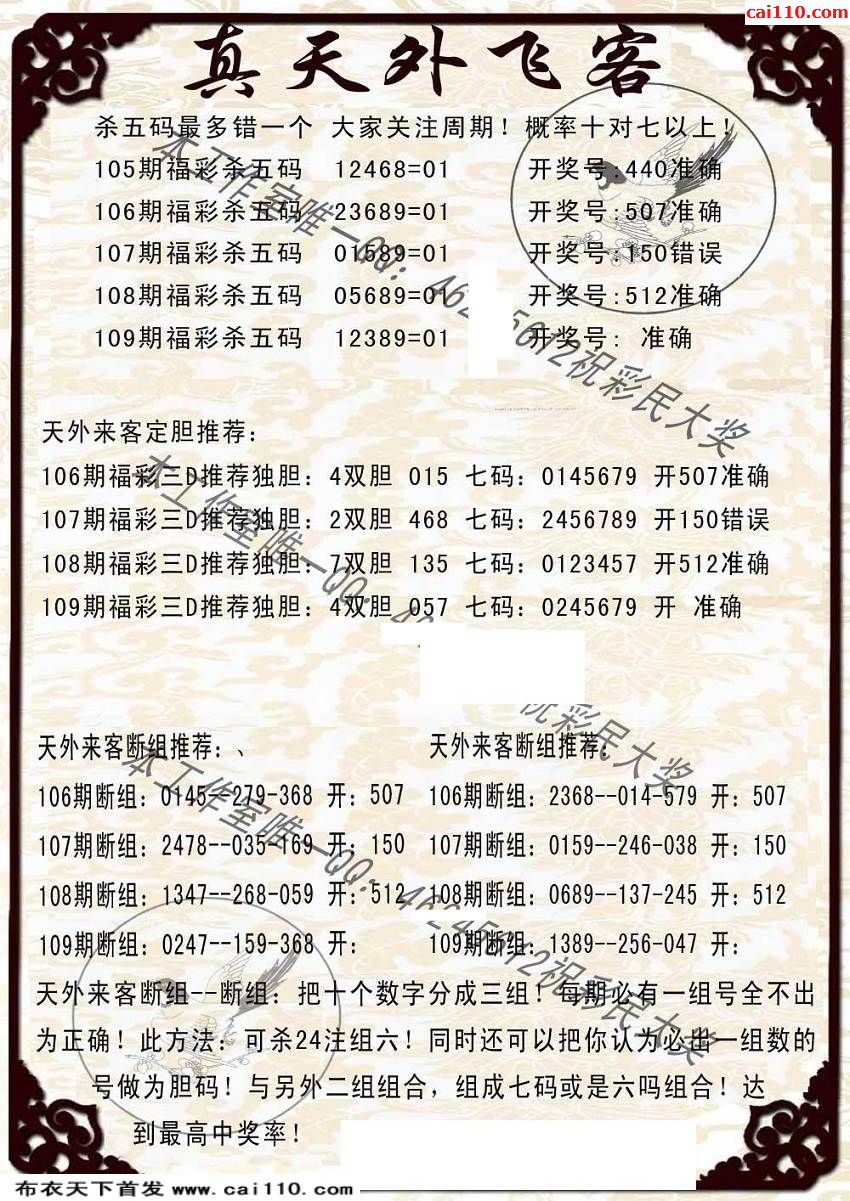 cai110.com
真天外飞客
杀五码最多错一个 大家关注周期！概率十对七以上！
105期福彩杀五码 12468=01 开奖号:440准确
106期福彩杀五码 23689=01 开奖号:507准确
107期福彩杀五码 01589=01 开奖号:150错误
108期福彩杀五码 05689=01 开奖号:512准确
109期福彩杀五码 12389=01 开奖号: 准确
天外来客定胆推荐：
106期福彩三D推荐独胆：4双胆 015 七码：0145679 开507准确
107期福彩三D推荐独胆：2双胆 468 七码：2456789 开150错误
108期福彩三D推荐独胆：7双胆 135 七码：0123457 开512准确
109期福彩三D推荐独胆：4双胆 057 七码：0245679 开 准确
天外来客断组推荐：、
106期断组：0145--279-368 开：507
107期断组：2478--035-169 开：150
108期断组：1347--268-059 开：512
109期断组：0247--159-368 开：
天外来客断组推荐：
106期断组：2368--014-579 开：507
107期断组：0159--246-038 开：150
108期断组：0689--137-245 开：512
109期断组：1389--256-047 开：
天外来客断组--断组：把十个数字分成三组！每期必有一组号全不出
为正确！此方法：可杀24注组六！同时还可以把你认为必出一组数的
号做为胆码！与另外二组组合，组成七码或是六吗组合！达
到最高中奖率！
本工作室唯一QQ：462
5612祝彩民大奖
本工作室唯一QQ：46
祝彩民大奖
本工作室唯一QQ：46245612祝彩民大奖
布衣天下首发 www.cai110.com